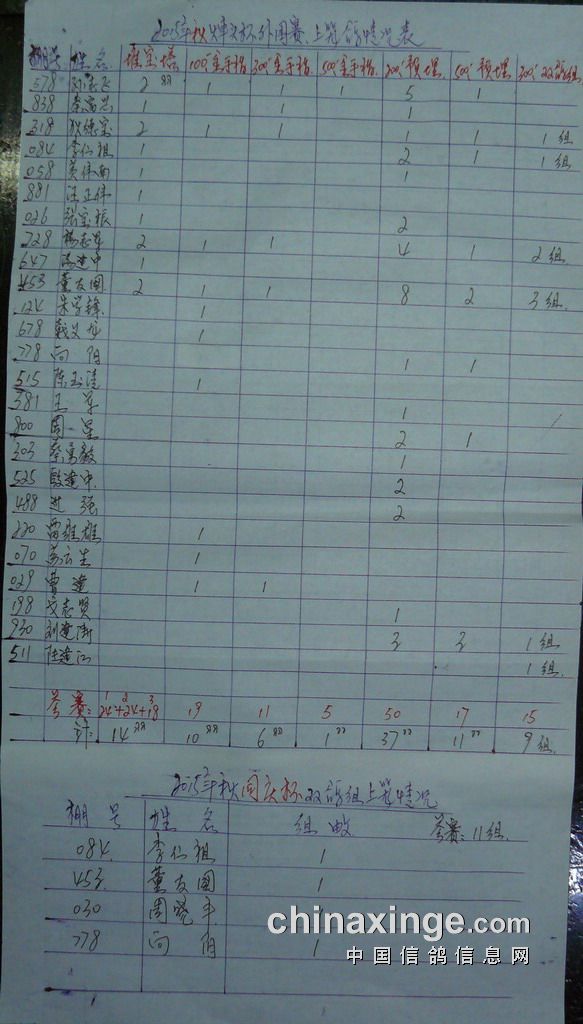 2015年秋 杯外围赛上笼鸽情况表
棚号 姓名 堆宝塔 100元金手指 200元金手指 500元金手指 200元预埋 500元预埋 300元双鸽组
578 2羽 1 1 1 5 1
838 1 1 1
318 2 1 1 1 1 1组
084 李仁祖 1 2 1 1组
058 1 1
881 汪正伟 1
026 张宝振 1 2
728 杨志军 2 1 1 4 1 2组
647 建中 1
453 董友国 2 1 1 8 2 3组
124 朱学锋 1
678 戴义 1
778 向阳 1 1
515 陈玉清 1
381 王军 1
800 周一星 2 1
303 蔡勇毅 1
525 殷建中 2
488 进强 2
220 雷维雄 1
070 云生 1
029 曹建 1 1
198 志贤 1
930 刘建新 3 3 1组
511 任建江 1组
参赛: 1 24+2 24+3 18 19 11 5 50 17 15
计: 14羽 10羽 6羽 1羽 37羽 11羽 9组
2015年秋国庆杯双鸽组上笼情况
棚号 姓名 组数 参赛:11组
084 李仁祖 1
453 董友国 1
030 周晓平 1
778 向阳 1
chinaxinge.com
中国信鸽信息网